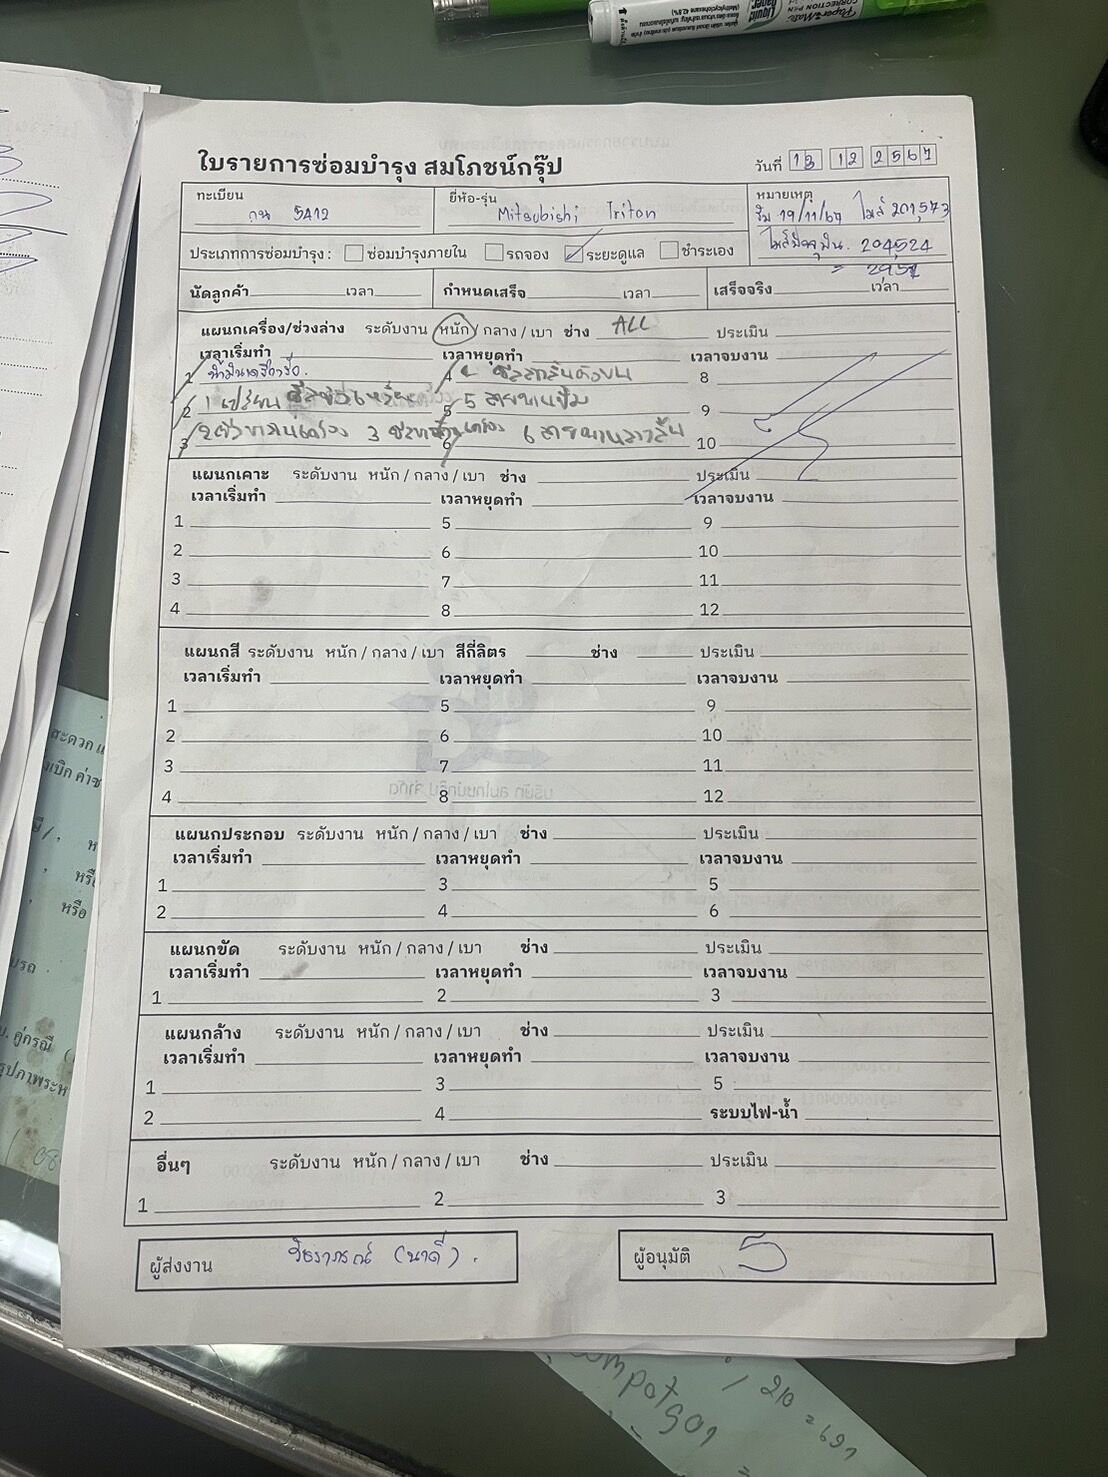 Paper Mate
CORRECTION PEN
Liquid Paper
ใบรายการซ่อมบำรุง สมโภชน์กรุ๊ป
วันที่ 13 12 2567
ทะเบียน กน 5412
ยี่ห้อ-รุ่น Mitsubishi Triton
หมายเหตุ
19/11/67 ไมล์ 201573
204524
= 2951
ประเภทการซ่อมบำรุง : ซ่อมบำรุงภายใน รถจอง ระยะดูแล ชำระเอง
นัดลูกค้า เวลา กำหนดเสร็จ เวลา เสร็จจริง เวลา
แผนกเครื่อง/ช่วงล่าง ระดับงาน หนัก / กลาง / เบา ช่าง ALL ประเมิน
เวลาเริ่มทำ เวลาหยุดทำ เวลาจบงาน
1 4 8
2 1 เปลี่ยน 5 5 สายพานปั๊ม 9
3 2 3 6 6 10
แผนกเคาะ ระดับงาน หนัก / กลาง / เบา ช่าง ประเมิน
เวลาเริ่มทำ เวลาหยุดทำ เวลาจบงาน
1 5 9
2 6 10
3 7 11
4 8 12
แผนกสี ระดับงาน หนัก / กลาง / เบา สีกี่ลิตร ช่าง ประเมิน
เวลาเริ่มทำ เวลาหยุดทำ เวลาจบงาน
1 5 9
2 6 10
3 7 11
4 8 12
แผนกประกอบ ระดับงาน หนัก / กลาง / เบา ช่าง ประเมิน
เวลาเริ่มทำ เวลาหยุดทำ เวลาจบงาน
1 3 5
2 4 6
แผนกขัด ระดับงาน หนัก / กลาง / เบา ช่าง ประเมิน
เวลาเริ่มทำ เวลาหยุดทำ เวลาจบงาน
1 2 3
แผนกล้าง ระดับงาน หนัก / กลาง / เบา ช่าง ประเมิน
เวลาเริ่มทำ เวลาหยุดทำ เวลาจบงาน
1 3 5
2 4 ระบบไฟ-น้ำ
อื่นๆ ระดับงาน หนัก / กลาง / เบา ช่าง ประเมิน
1 2 3
ผู้ส่งงาน (นาดี)
ผู้อนุมัติ